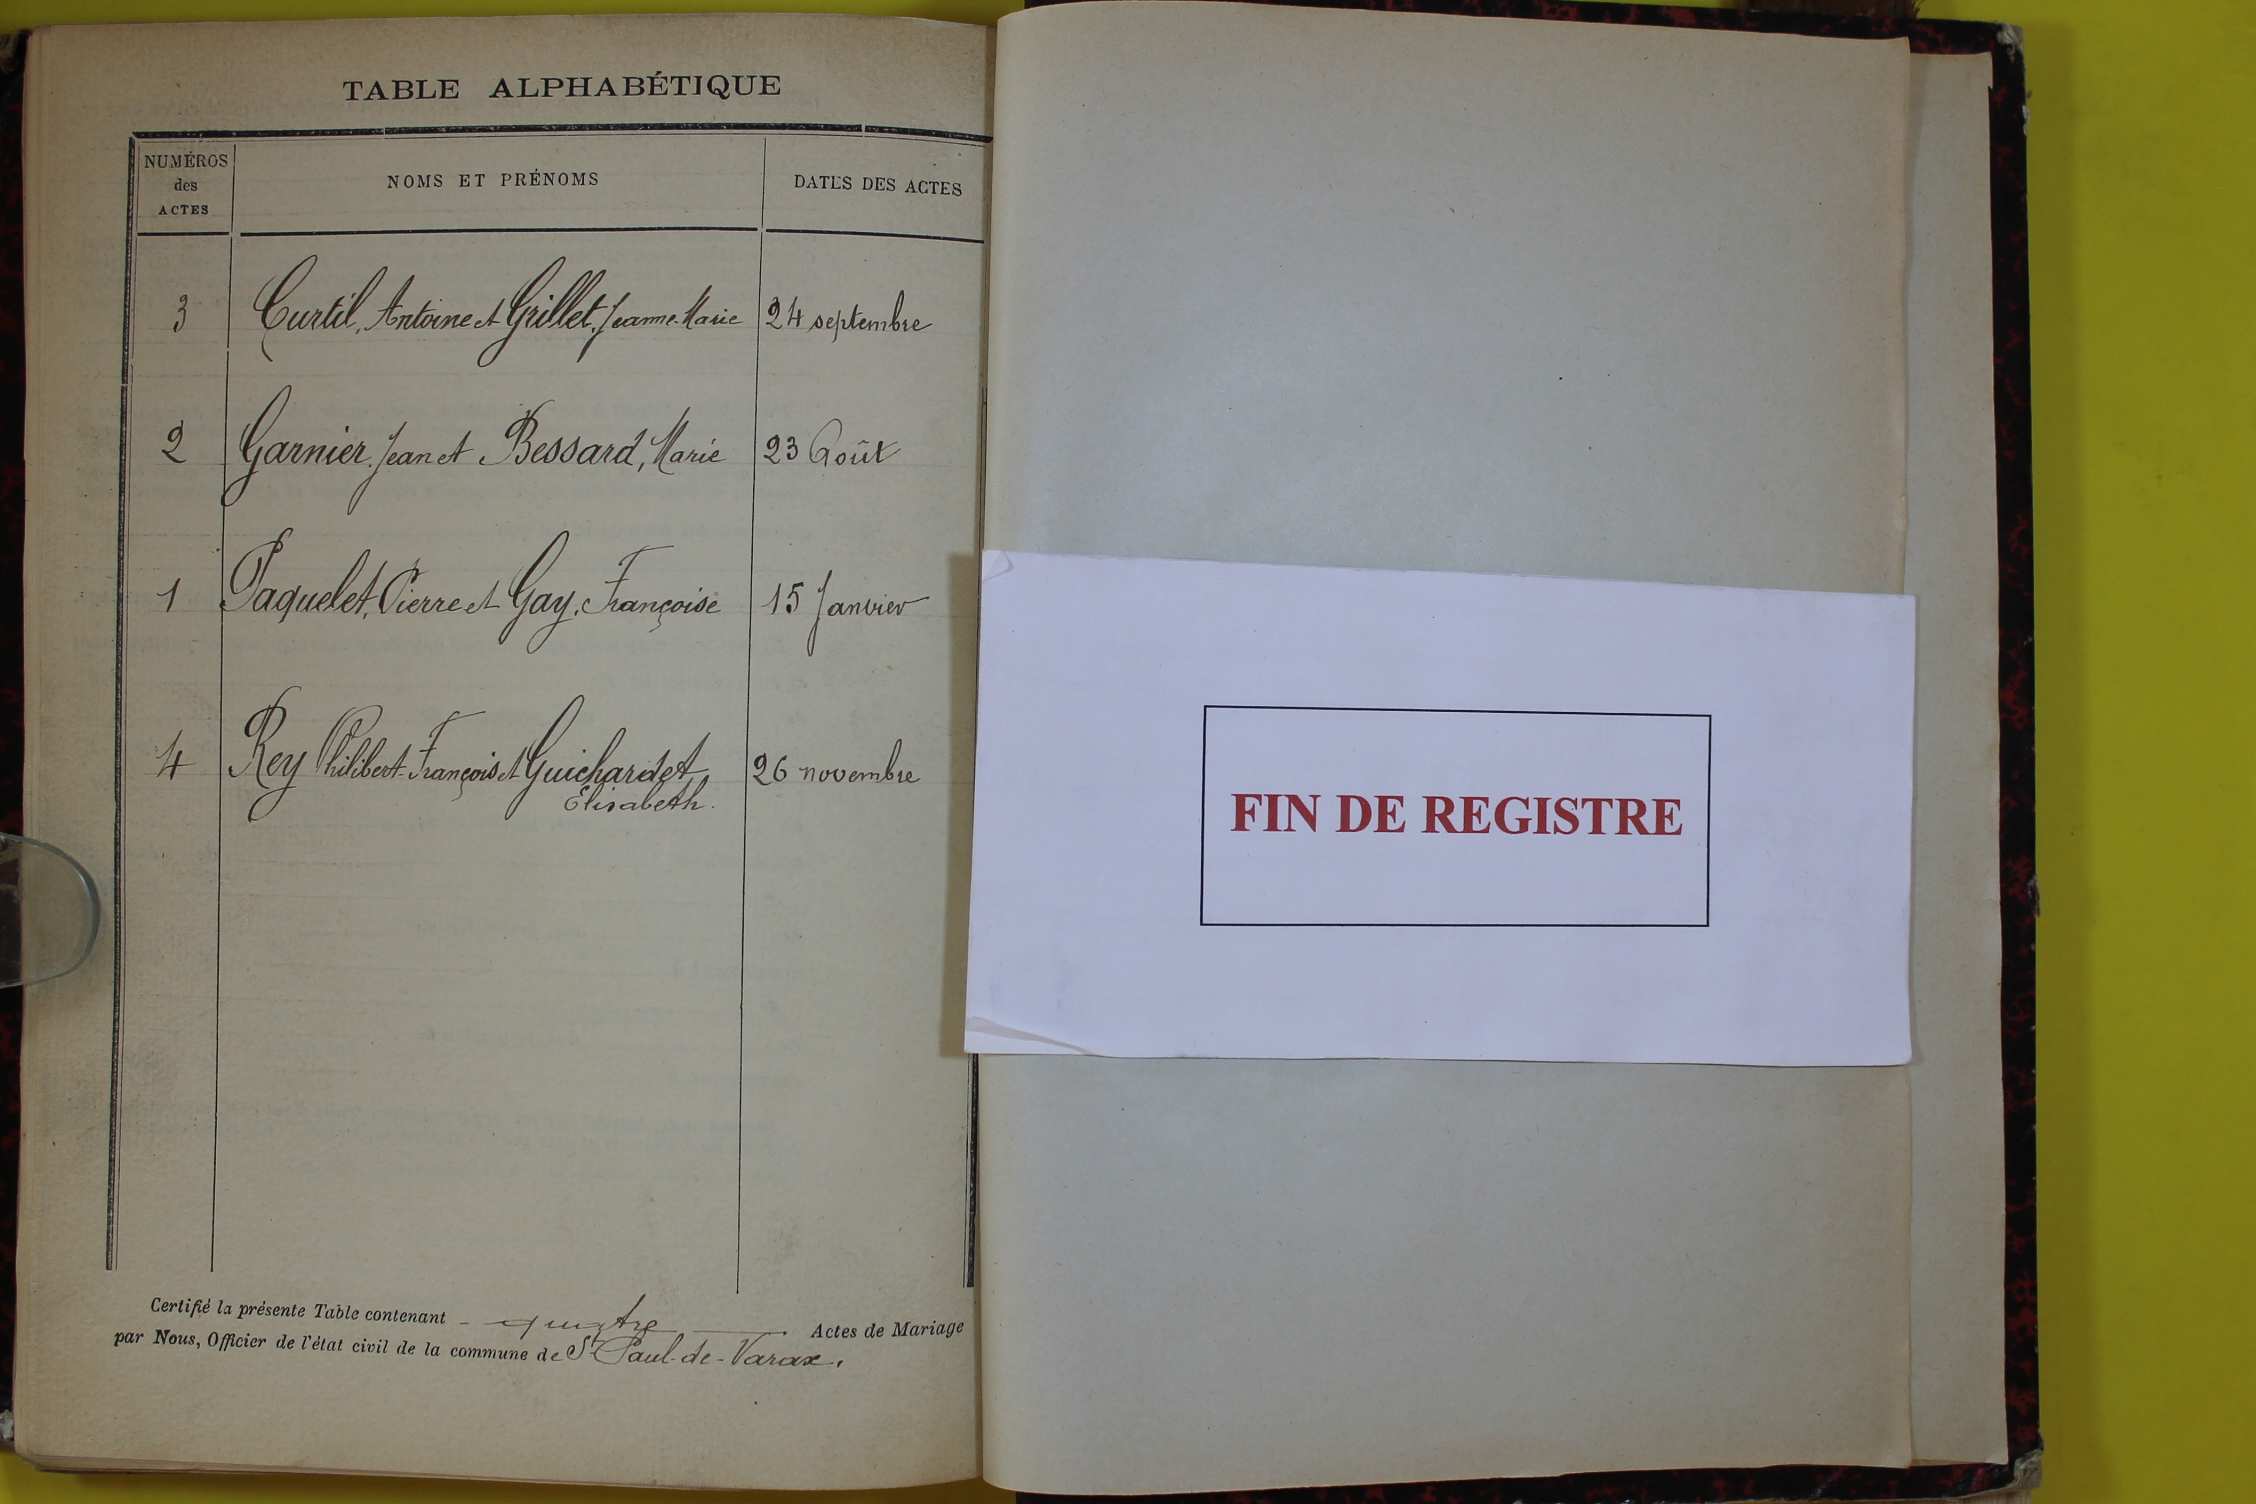 TABLE ALPHABÉTIQUE
NUMÉROS
des
ACTES
NOMS ET PRÉNOMS
DATES DES ACTES
3 Curtil, Antoine et Grillet, Jeanne-Marie 24 septembre
2 Garnier, Jean et Bessard, Marie 23 Août
1 Paquelet, Pierre et Gay, Françoise 15 Janvier
4 Rey Philibert-François et Guichardet 26 novembre
Elisabeth.
Certifié la présente Table contenant - quatre Actes de Mariage
par Nous, Officier de l'état civil de la commune de St Paul-de-Varax.
FIN DE REGISTRE